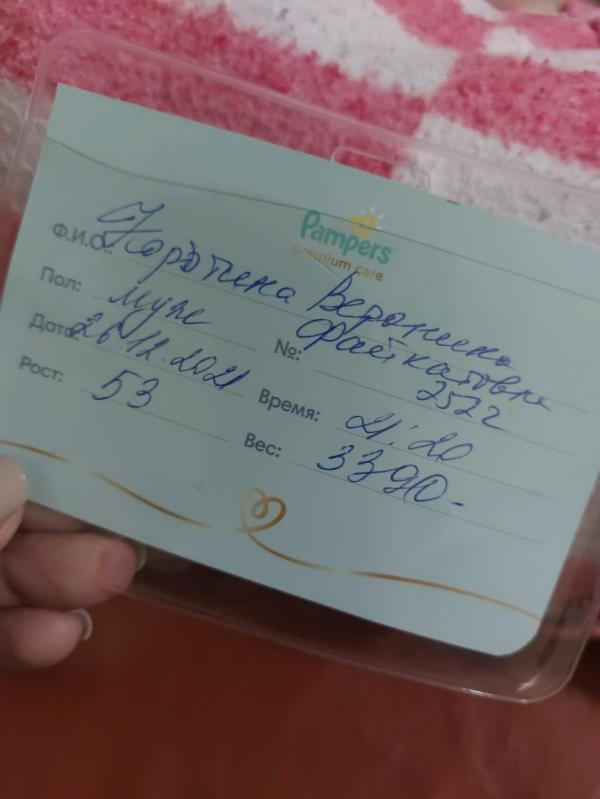 Pampers
premium care
Ф.И.О.: Коротина Вероника
Файкатовна
Пол: муж №: 2522
Дата: 26.12.2021 Время: 21:20
Рост: 53 Вес: 3390-